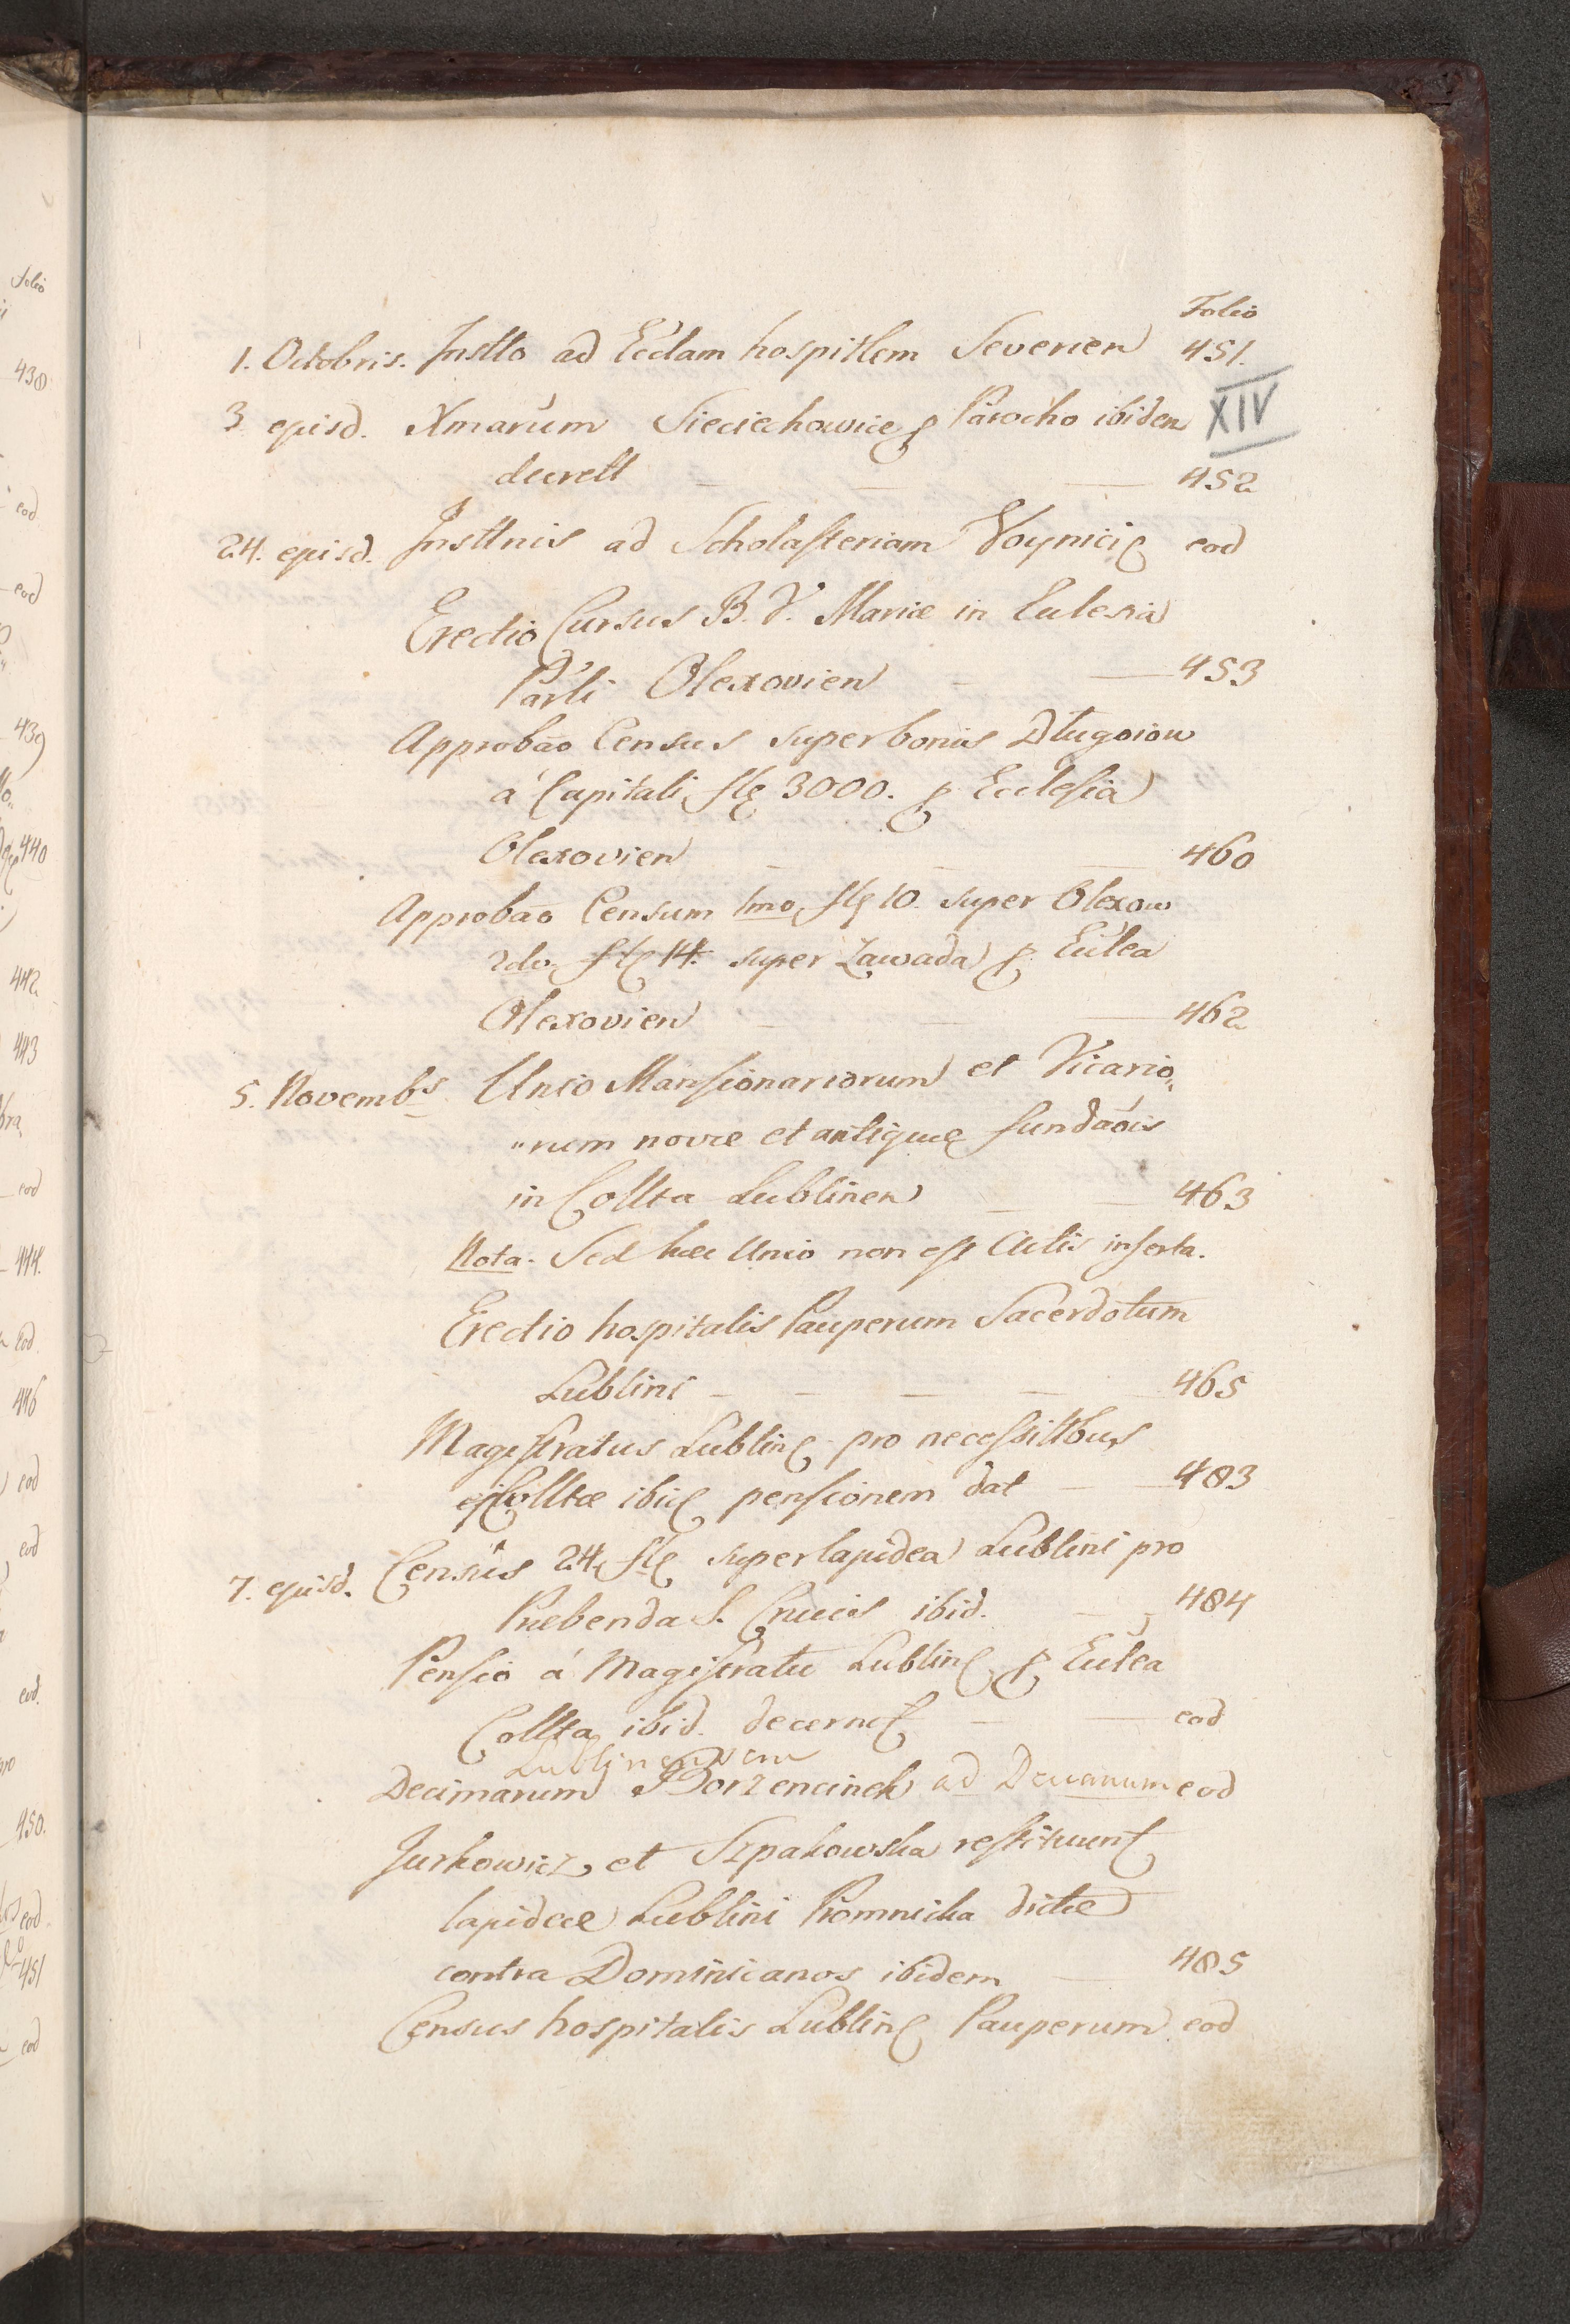 Folio
1. Octobris. Insttõ ad Ecclam hospitlem Severien 451.
XIV
3 ejusd. Xmarum Sieciechowice p Parocho ibidem
decrett 452
24. ejusd. Insttnis ad Scholasteriam Voynicię eod
Erectio Cursus B. V. Mariæ in Eccłesia
Parli Olexovien 453
Approbão Census super bonis Długoiow
á Capitali flę 3000. p Ecclesia
Olexovien 460
Approbão Censum 1mo flę 10. super Olexow
2do. flę 14. super Zawada p. Eccłea
Olexovien 462
5. Novembs Unio Mansionariorum et Vicario„
„rum novæ et antiquæ fundaõis
in Collta Lublinen 463
Nota. Sed hæc Unio non est Actis inserta.
Erectio hospitalis Pauperum Sacerdotum
Lublini 465
Magistratus Lublinę pro necessittbus
Colltæ ibię pensionem dat 483
7. ejusd. Census 24 flę super lapidea Lublini pro
Præbenda S. Crucis ibid. 484
Pensio á Magistratu Lublinę p Eccłea
Collta ibid. decernę eod
Lublinensem
Decimarum Borzencinek ad Decanum eod
Jurkowicz et Szpakowska restituunę
lapideæ Lublini Kromnicka dictæ
contra Dominicanos ibidem 485
Census hospitalis Lublinę Pauperum eod
438
eod
eod
439
440
442
443
eod
444.
eod
446
eod
eod
eod.
450.
eod.
451
eod